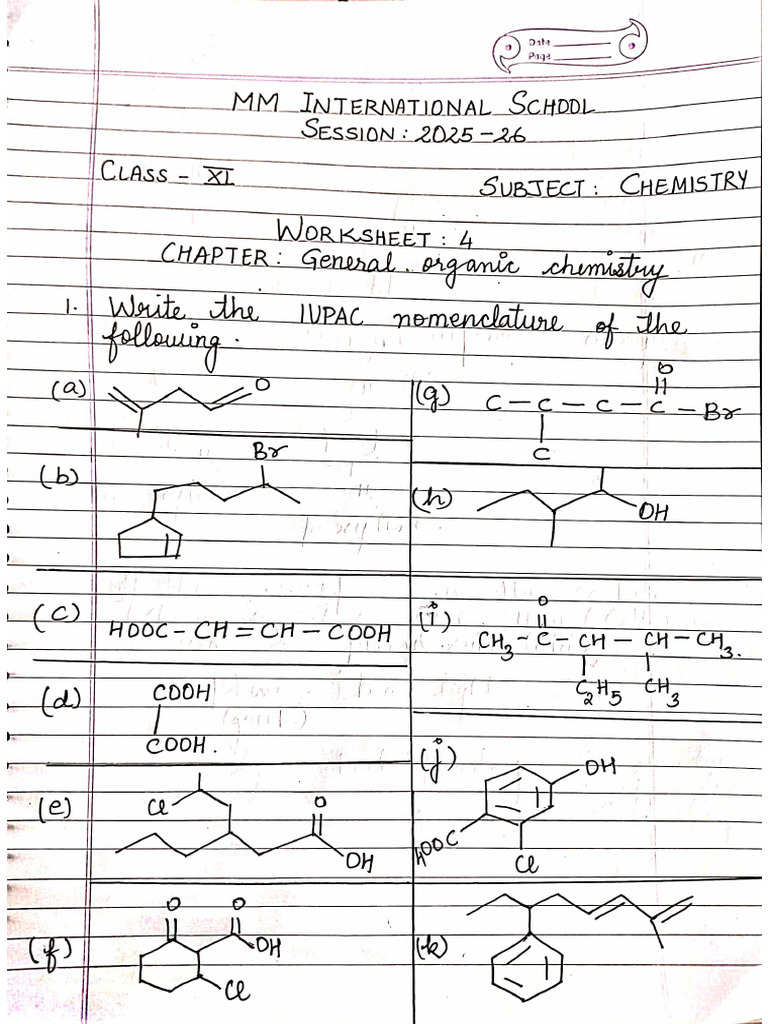 Date
Page
MM INTERNATIONAL SCHOOL
SESSION: 2025-26
CLASS - XI
SUBJECT: CHEMISTRY
WORKSHEET: 4
CHAPTER: General organic chemistry
1. Write the IUPAC nomenclature of the
following.
(a) O
(b) Br
(c) HOOC - CH = CH - COOH
(d) COOH
COOH.
(e) Cl O
OH
(f) O O
OH
Cl
(g) O
C - C - C - C - Br
C
(h) OH
(i) O
CH3 - C - CH - CH - CH3.
C2H5 CH3
(j) OH
HOOC
Cl
(k)